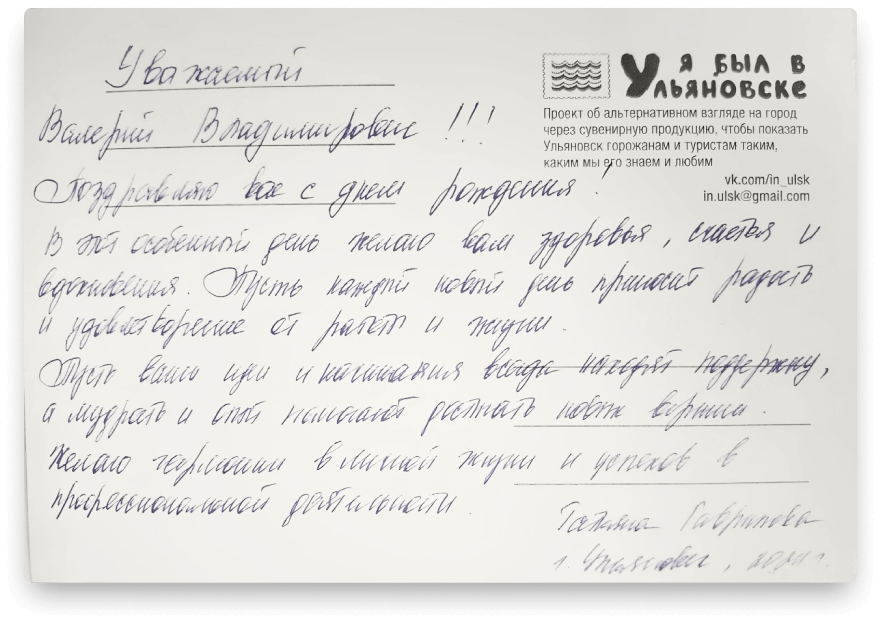 Уважаемый
Я БЫЛ В
УЛЬЯНОВСКЕ
Проект об альтернативном взгляде на город
через сувенирную продукцию, чтобы показать
Ульяновск горожанам и туристам таким,
каким мы его знаем и любим
vk.com/in_ulsk
in.ulsk@gmail.com
Валерий Владимирович !!!
Поздравляю вас с днем рождения!
В этот особенный день желаю вам здоровья, счастья и
вдохновения. Пусть каждый новый день приносит радость
и удовлетворение от работы и жизни.
Пусть ваши идеи и начинания всегда находят поддержку,
а мудрость и опыт помогают достигать новых вершин.
Желаю гармонии в личной жизни и успехов в
профессиональной деятельности.
Татьяна Гаврилова
г. Ульяновск,